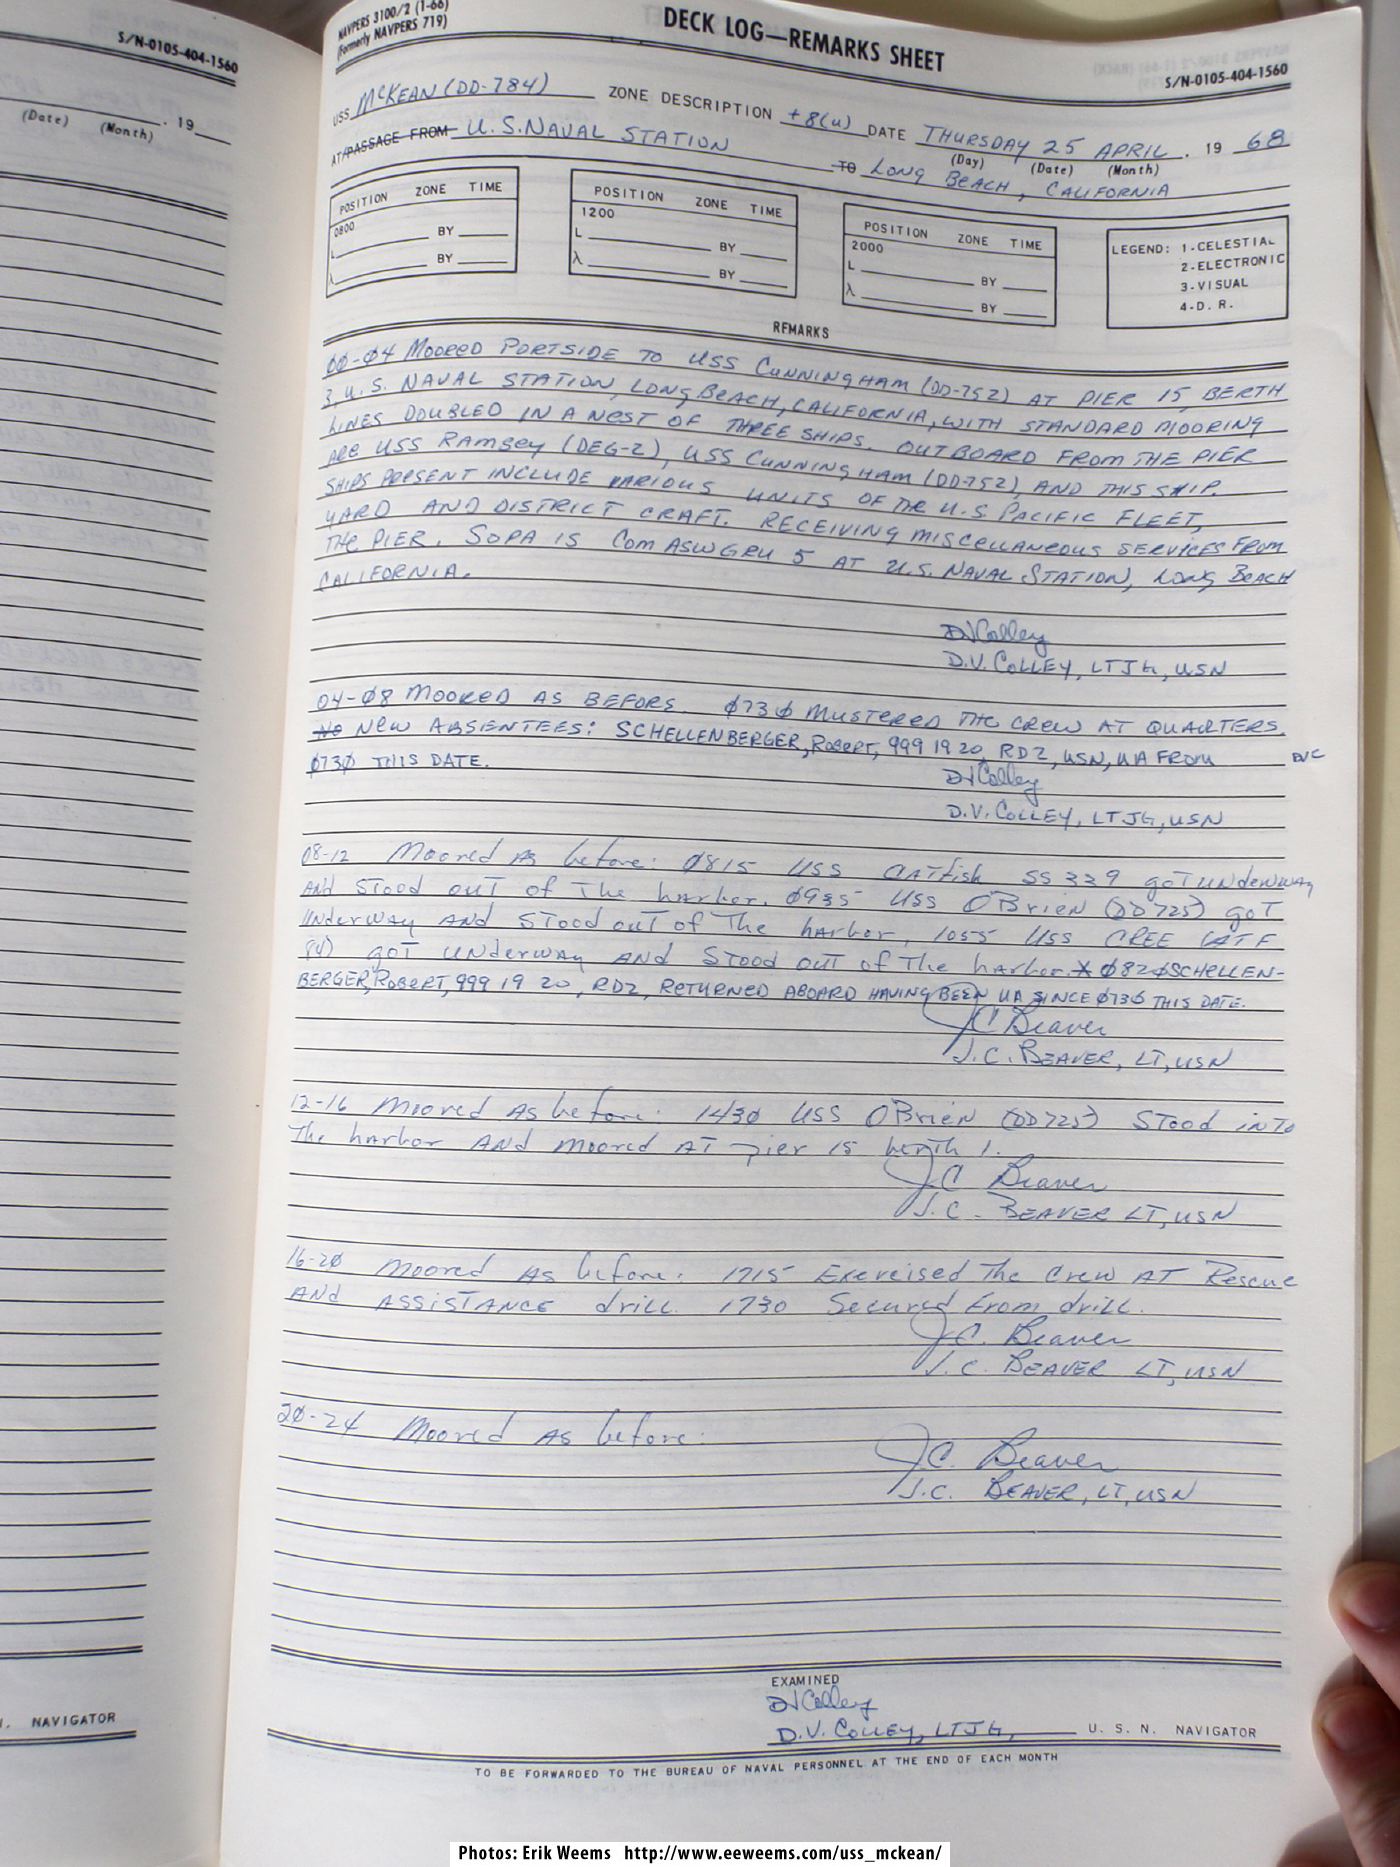 S/N-0105-404-1560
. 19
(Date) (Month)
. NAVIGATOR
NAVPERS 3100/2 (1-66)
(Formerly NAVPERS 719)
DECK LOG—REMARKS SHEET
S/N-0105-404-1560
USS McKEAN (DD-784) ZONE DESCRIPTION +8(U) DATE THURSDAY 25 APRIL . 19 68
(Day) (Date) (Month)
AT/PASSAGE FROM U.S. NAVAL STATION TO LONG BEACH, CALIFORNIA
POSITION ZONE TIME
0800
L BY
λ BY
POSITION ZONE TIME
1200
L BY
λ BY
POSITION ZONE TIME
2000
L BY
λ BY
LEGEND: 1-CELESTIAL
2-ELECTRONIC
3-VISUAL
4-D.R.
REMARKS
00-04 MOORED PORTSIDE TO USS CUNNINGHAM (DD-752) AT PIER 15, BERTH
3, U.S. NAVAL STATION, LONG BEACH, CALIFORNIA, WITH STANDARD MOORING
LINES DOUBLED IN A NEST OF THREE SHIPS. OUTBOARD FROM THE PIER
ARE USS RAMSEY (DEG-2), USS CUNNINGHAM (DD752), AND THIS SHIP.
SHIPS PRESENT INCLUDE VARIOUS UNITS OF THE U.S. PACIFIC FLEET,
YARD AND DISTRICT CRAFT. RECEIVING MISCELLANEOUS SERVICES FROM
THE PIER. SOPA IS COMASWGRU 5 AT U.S. NAVAL STATION, LONG BEACH
CALIFORNIA.
DV Colley
D.V. COLLEY, LTJG, USN
04-08 MOORED AS BEFORE. 0730 MUSTERED THE CREW AT QUARTERS.
NO NEW ABSENTEES: SCHELLENBERGER, ROBERT, 999 19 20, RD2, USN, UA FROM DVC
0730 THIS DATE.
DV Colley
D.V. COLLEY, LTJG, USN
08-12 Moored As before. 0815 USS CATfish SS 339 goT underway
And STood ouT of The harbor. 0935 USS O'Brien (DD725) goT
Underway And STood ouT of The harbor, 1055 USS CREE (ATF
84) goT Underway And STood ouT of The harbor. * 0820 SCHELLEN-
BERGER, ROBERT, 999 19 20, RD2, RETURNED ABOARD HAVING BEEN UA SINCE 0730 THIS DATE.
JC Beaver
J.C. BEAVER, LT, USN
12-16 Moored As before. 1430 USS O'Brien (DD725) STood inTo
The harbor And moored AT pier 15 berth 1.
JC Beaver
J.C. BEAVER LT, USN
16-20 Moored As before. 1715 Exercised The Crew AT Rescue
And ASSISTANCE drill. 1730 Secured from drill.
J.C. Beaver
J.C. BEAVER LT, USN
20-24 Moored As before.
J.C. Beaver
J.C. BEAVER, LT, USN
EXAMINED
DV Colley
D.V. COLLEY, LTJG, U. S. N. NAVIGATOR
TO BE FORWARDED TO THE BUREAU OF NAVAL PERSONNEL AT THE END OF EACH MONTH
Photos: Erik Weems http://www.eeweems.com/uss_mckean/